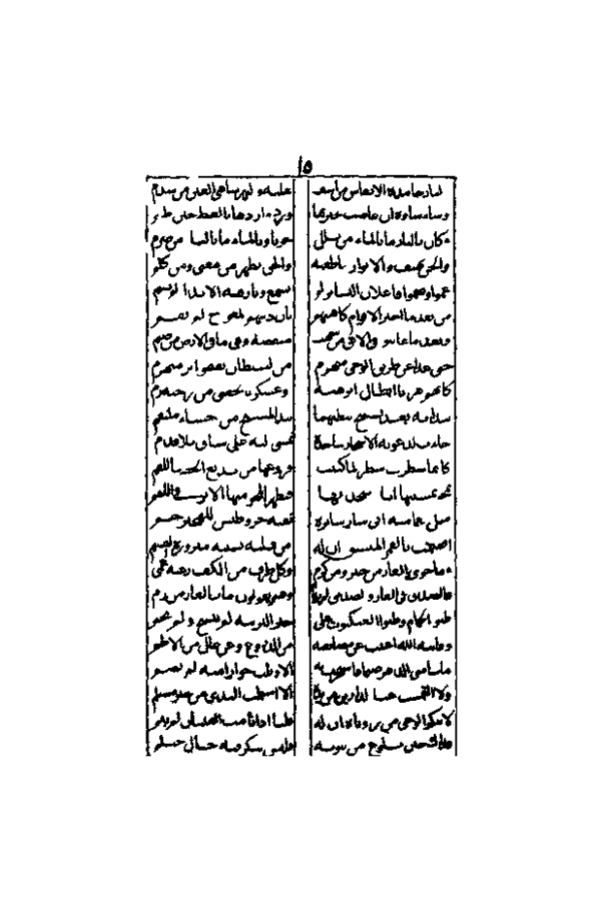 ١٥
والنار خامدة الانفاس من اسف عليه والنهر ساهي العين من سدم
وساء ساوة ان غاضت بحيرتها ورد واردها بالغيظ حين ظمي
كان بالنار ما بالماء من بلل حزنا وبالماء ما بالنار من ضرم
والجن تهتف والانوار ساطعة والحق يظهر من معنى ومن كلم
عموا وصموا فاعلان البشائر لم تسمع وبارقة الانذار لم تشم
من بعد ما اخبر الاقوام كاهنهم بان دينهم المعوج لم يقم
وبعد ما عاينوا في الافق من شهب منقضة وفق ما في الارض من صنم
حتى غدا عن طريق الوحي منهزم من الشيطان يقفو اثر منهزم
كانهم هربا ابطال ابرهة وعسكر بالحصى من راحتيه رمي
نبذا به بعد تسبيح ببطنهما نبذ المسبح من احشاء ملتقم
جاءت لدعوته الاشجار ساجدة تمشي اليه على ساق بلا قدم
كانما سطرت سطرا لما كتبت فروعها من بديع الخط باللقم
منها
مثل الغمامة انى سار سائرة تقيه حر وطيس للهجير حمي
اقسمت بالقمر المنشق ان له من قلبه نسبة مبرورة القسم
وما حوى الغار من خير ومن كرم وكل طرف من الكفار عنه عمي
فالصدق في الغار والصديق لم يرما وهم يقولون ما بالغار من ارم
ظنوا الحمام وظنوا العنكبوت على خير البرية لم تنسج ولم تحم
وقاية الله اغنت عن مضاعفة من الدروع وعن عال من الاطم
ما سامني الدهر ضيما واستجرت به الا ونلت جوارا منه لم يضم
ولا التمست غنى الدارين من يده الا استلمت الندى من خير مستلم
لا تنكر الوحي من رؤياه ان له قلبا اذا نامت العينان لم ينم
فذاك حين بلوغ من نبوته فليس ينكر فيه حال محتلم